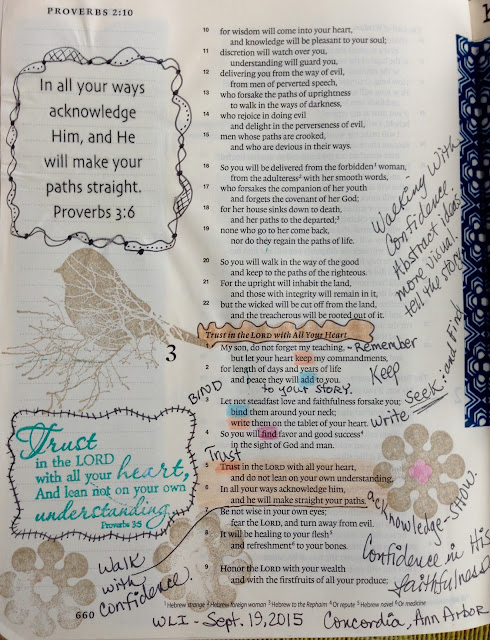 PROVERBS 2:10
10 for wisdom will come into your heart,
and knowledge will be pleasant to your soul;
11 discretion will watch over you,
understanding will guard you,
12 delivering you from the way of evil,
from men of perverted speech,
13 who forsake the paths of uprightness
to walk in the ways of darkness,
14 who rejoice in doing evil
and delight in the perverseness of evil,
15 men whose paths are crooked,
and who are devious in their ways.
16 So you will be delivered from the forbidden¹ woman,
from the adulteress² with her smooth words,
17 who forsakes the companion of her youth
and forgets the covenant of her God;
18 for her house sinks down to death,
and her paths to the departed;³
19 none who go to her come back,
nor do they regain the paths of life.
20 So you will walk in the way of the good
and keep to the paths of the righteous.
21 For the upright will inhabit the land,
and those with integrity will remain in it,
22 but the wicked will be cut off from the land,
and the treacherous will be rooted out of it.
In all your ways
acknowledge
Him, and He
will make your
paths straight.
Proverbs 3:6
Walking With
Confidence
Abstract ideas
more visual.
tell the story
Trust in the LORD with All Your Heart
3
1 My son, do not forget my teaching, - Remember
but let your heart keep my commandments, Keep
2 for length of days and years of life
and peace they will add to you.
to your STORY.
BIND
3 Let not steadfast love and faithfulness forsake you;
bind them around your neck;
write them on the tablet of your heart. write
Seek: and Find
4 So you will find favor and good success⁴
in the sight of God and man.
Trust
5 Trust in the LORD with all your heart,
and do not lean on your own understanding.
6 In all your ways acknowledge him,
and he will make straight your paths.
acknowledge - SHOW.
7 Be not wise in your own eyes;
fear the LORD, and turn away from evil.
8 It will be healing to your flesh⁵
and refreshment⁶ to your bones.
9 Honor the LORD with your wealth
and with the firstfruits of all your produce;
Trust
in the LORD
with all your heart,
And lean not on your own
understanding.
Proverbs 3:5
Walk
with
confidence.
Confidence in His
faithfulness
¹ Hebrew strange ² Hebrew foreign woman ³ Hebrew to the Rephaim ⁴ Or repute ⁵ Hebrew navel ⁶ Or medicine
660
WLI - Sept. 19, 2015 Concordia, Ann Arbor